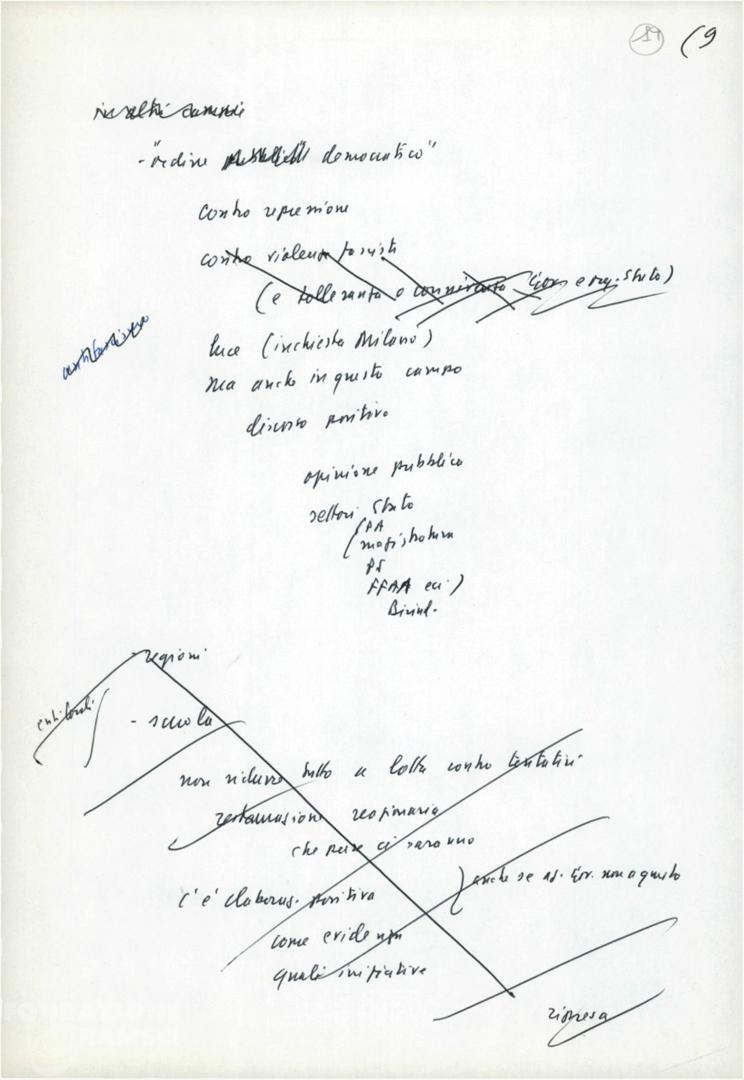 19 (9
in altri
- "ordine democratico"
contro repressione
contro violenza fascisti
(e tolleranza e connivenza Gov. e org. Stato)
luce (inchiesta Milano)
ma anche in questo campo
discorso positivo
opinione pubblica
settori Stato
(PA
magistratura
PS
FFAA ecc.)
- regioni
enti locali
- scuola
non ridurre tutto a lotta contro tentativi
restaurazione reazionaria
che pure ci saranno
c'è elaboraz. positiva
anche se gov. non a questo
come evidenza
quali iniziative
ripresa